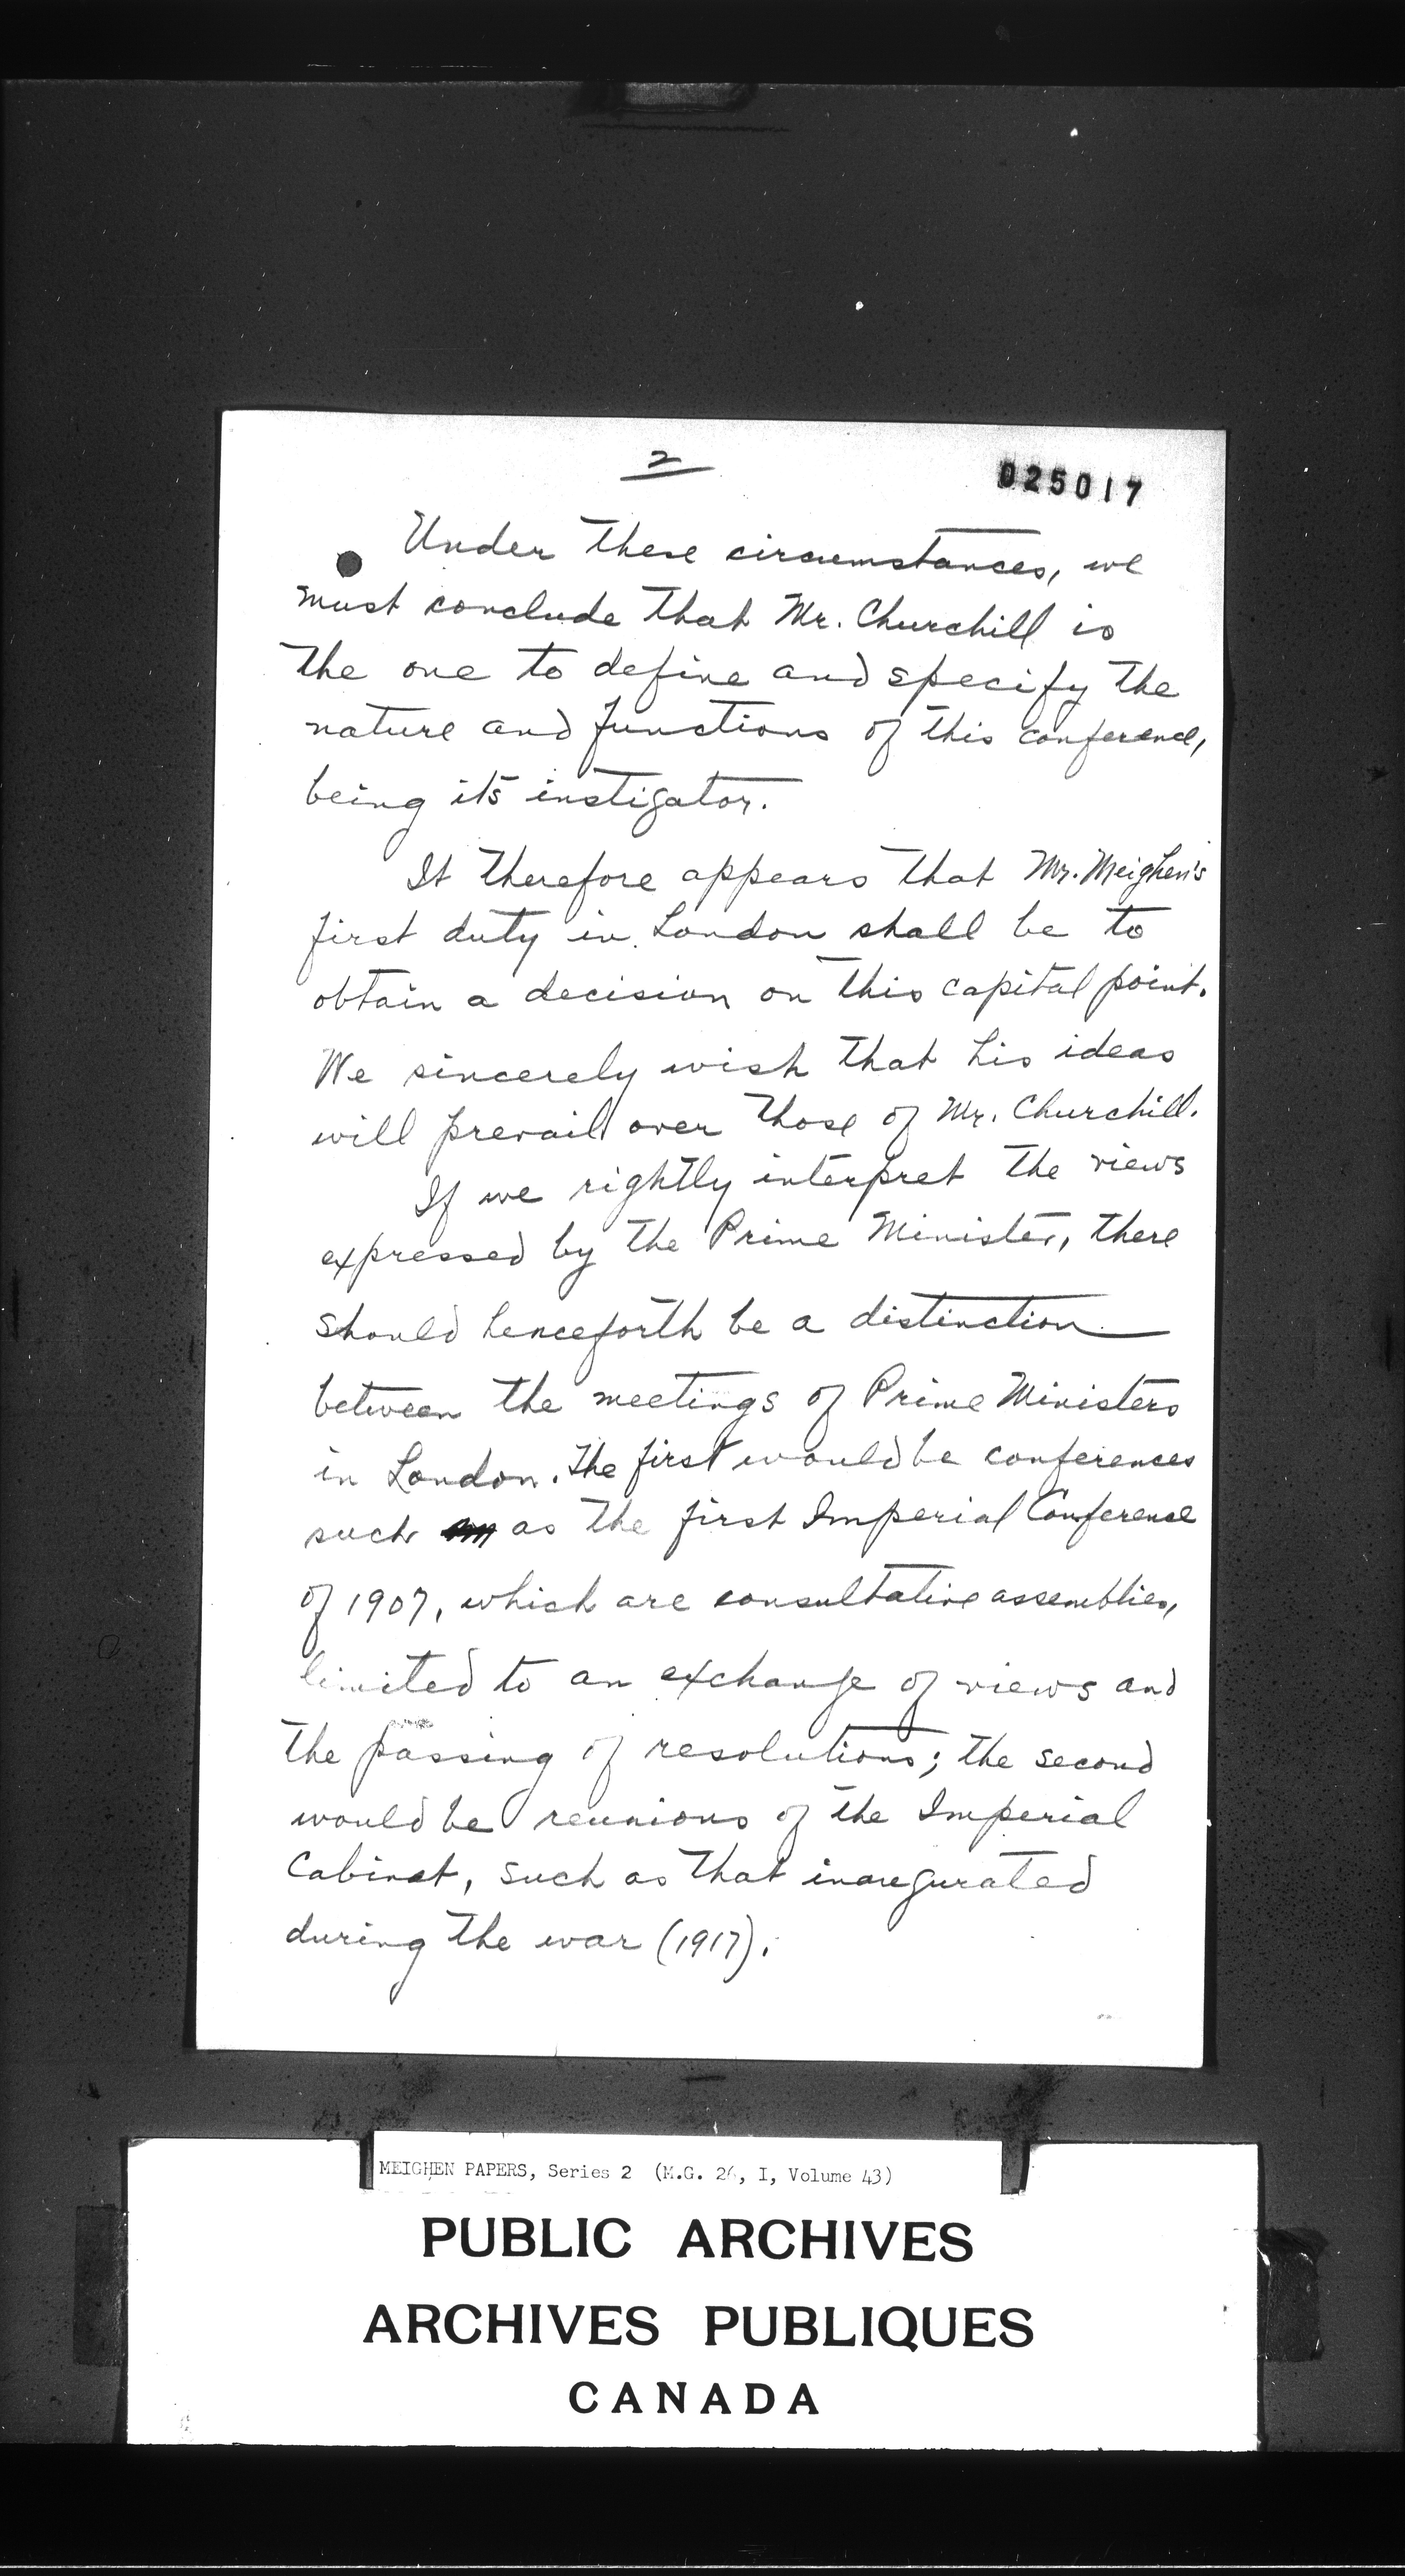 2
025017
Under these circumstances, we
must conclude that Mr. Churchill is
the one to define and specify the
nature and functions of this conference,
being its instigator.
It therefore appears that Mr. Meighen's
first duty in London shall be to
obtain a decision on this capital point.
We sincerely wish that his ideas
will prevail over those of Mr. Churchill.
If we rightly interpret the views
expressed by the Prime Minister, there
should henceforth be a distinction
between the meetings of Prime Ministers
in London. The first would be conferences
such as the first Imperial Conference
of 1907, which are consultative assemblies,
limited to an exchange of views and
the passing of resolutions; the second
would be reunions of the Imperial
Cabinet, such as that inaugurated
during the war (1917).
MEIGHEN PAPERS, Series 2 (M.G. 26, I, Volume 43)
PUBLIC ARCHIVES
ARCHIVES PUBLIQUES
CANADA